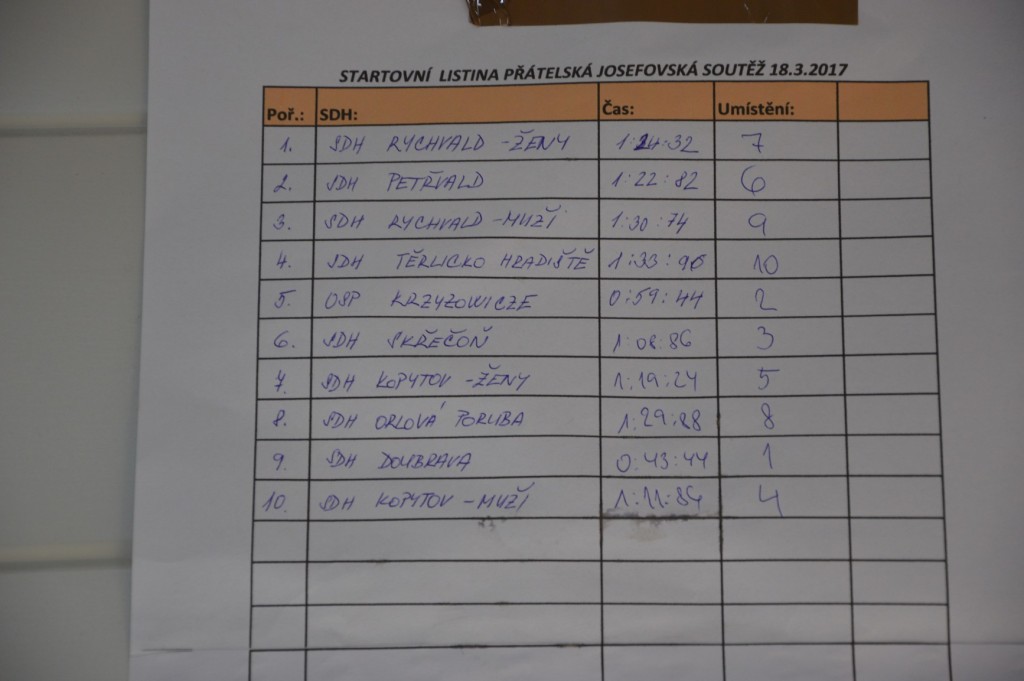 STARTOVNÍ LISTINA PŘÁTELSKÁ JOSEFOVSKÁ SOUTĚŽ 18.3.2017
Poř.: SDH: Čas: Umístění:
1. SDH RYCHVALD -ŽENY 1:24:32 7
2. SDH PETŘVALD 1:22:82 6
3. SDH RYCHVALD -MUŽI 1:30:74 9
4. SDH TĚRLICKO HRADIŠTĚ 1:33:96 10
5. OSP KRZYZOWICZE 0:59:44 2
6. SDH SKŘEČOŇ 1:08:86 3
7. SDH KOPYTOV -ŽENY 1:19:24 5
8. SDH ORLOVÁ PORUBA 1:29:88 8
9. SDH DOUBRAVA 0:43:44 1
10. SDH KOPYTOV -MUŽI 1:11:84 4